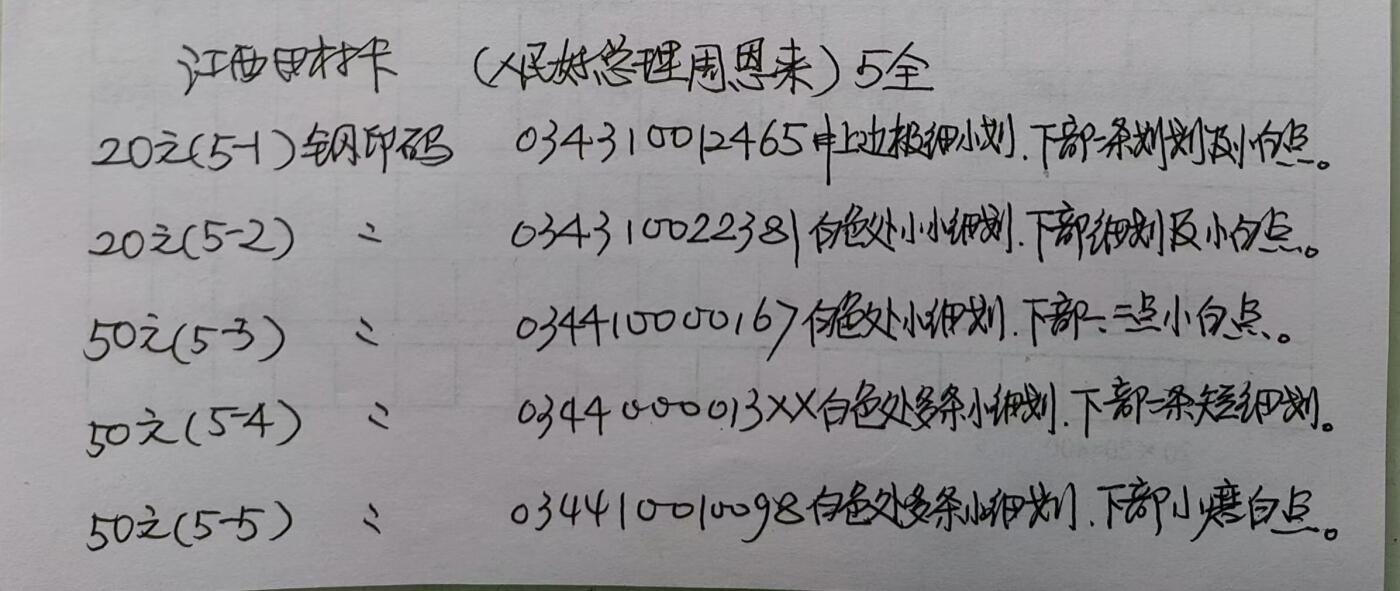 江西田村卡 (人民好总理周恩来) 5全
20元(5-1)钢印码 034310012465中上边极细小划.下部一条划划及小白点。
20元(5-2) 〃 034310022381白色处小小细划.下部细划及小白点。
50元(5-3) 〃 034410000167白色处小细划.下部一、二点小白点。
50元(5-4) 〃 0344000013XX白色处多条小细划.下部一条短细划。
50元(5-5) 〃 034410010098白色处多条小细划.下部小磨白点。